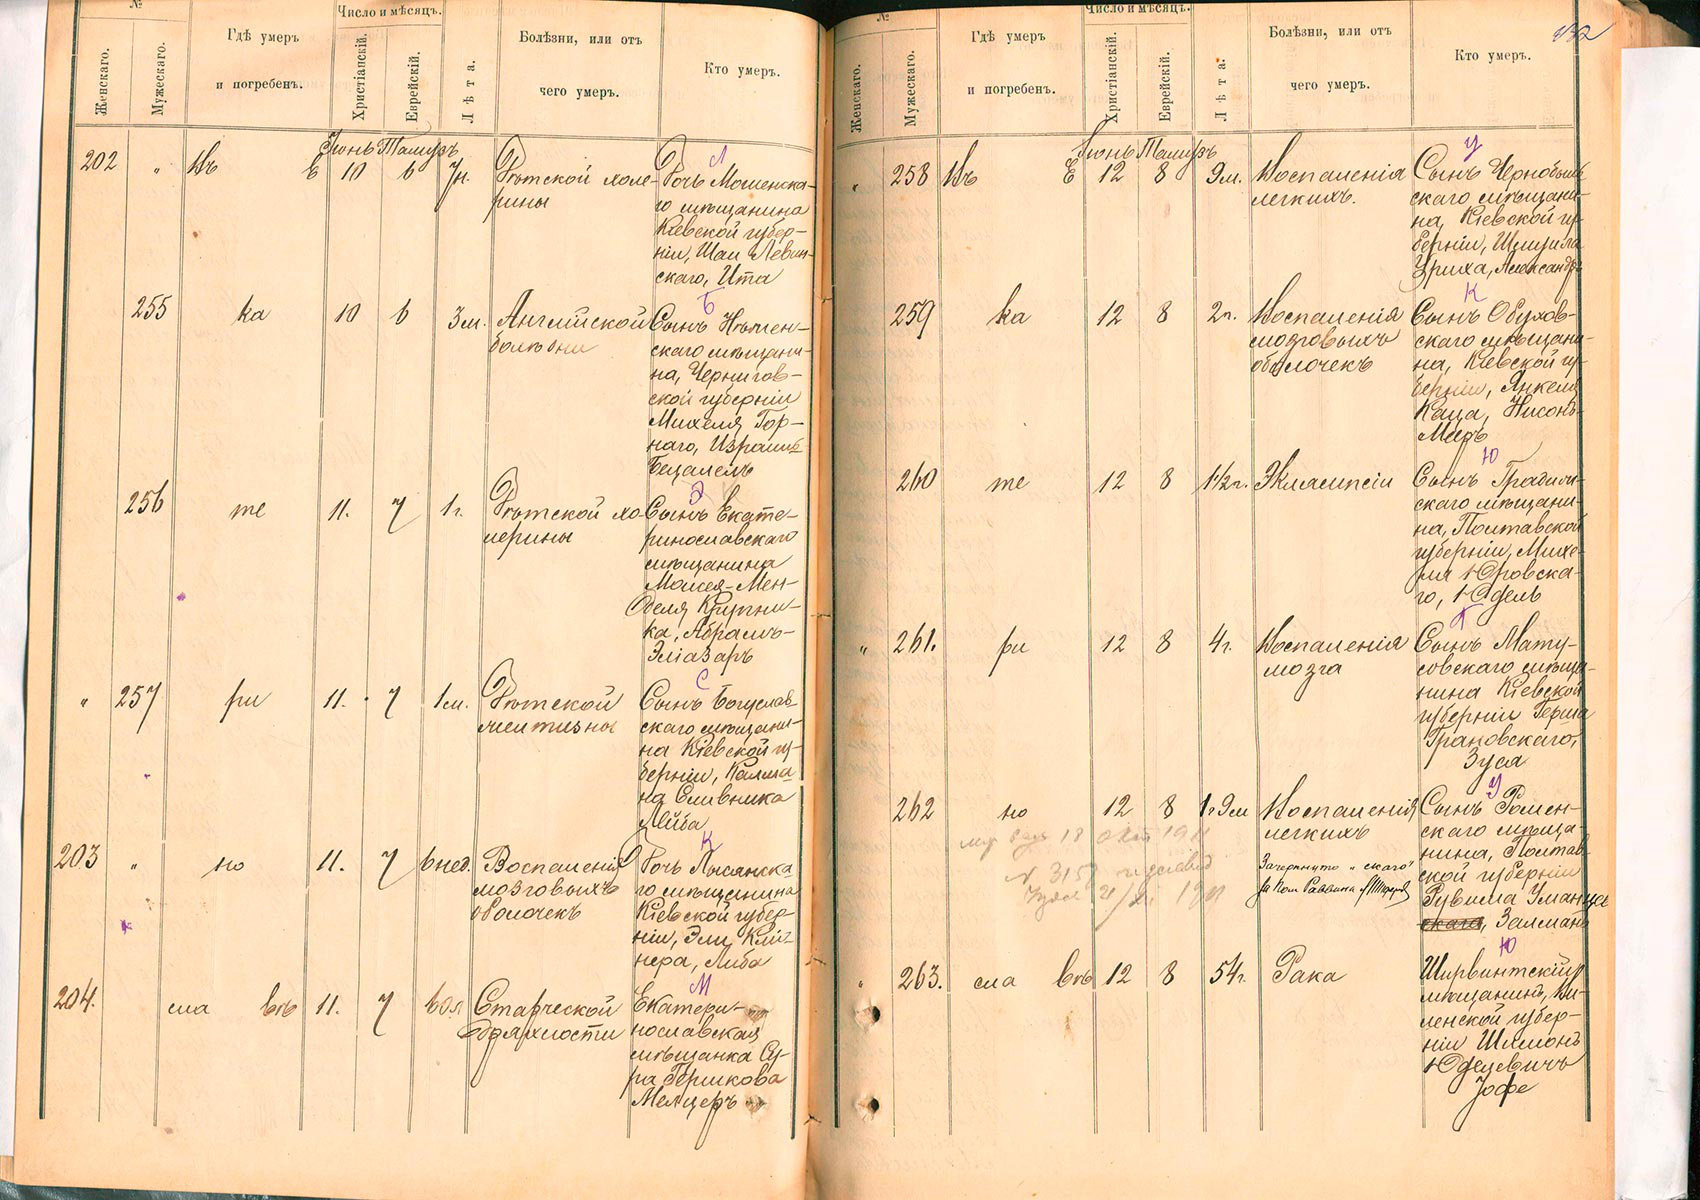 №
Число и мѣсяцъ.
Женскаго.
Мужескаго.
Гдѣ умеръ
и погребенъ.
Христіанскій.
Еврейскій.
Лѣта.
Болѣзни, или отъ
чего умеръ.
Кто умеръ.
Іюнь Тамузъ
202 " Въ Е 10 6 7н.
Дѣтской холе-
рины
Л
Дочь Мошенска-
го мѣщанина
Кіевской губер-
ніи, Шаи Левин-
скаго, Ита
255 ка 10 6 3м.
Англійской
болѣзни
Б
Сынъ Нѣжен-
скаго мѣщани-
на, Чернигов-
ской губерніи
Михеля Гор-
наго, Израиль
Бецалель
256 те 11. 7 1г.
Дѣтской хо-
лерины
Э
Сынъ Екате-
ринославскаго
мѣщанина
Моисея-Мен-
деля Крупни-
ка, Абрамъ-
Эліазаръ
" 257 ри 11. 7 1м.
Дѣтской
С
Сынъ Богуслав-
скаго мѣщани-
на Кіевской гу-
берніи, Калма-
на Сливника
Лейба
203 " но 11. 7 6 нед.
Воспаленія
мозговыхъ
оболочекъ
К
Дочь Лысянска-
го мѣщанина
Кіевской губер-
ніи, Эли Клій-
нера, Либа
204. сла въ 11. 7 60л.
Старческой
дряхлости
М
Екатери-
нославская
мѣщанка Су-
ра Гершкова
Мелцеръ
№
Число и мѣсяцъ.
132
Женскаго.
Мужескаго.
Гдѣ умеръ
и погребенъ.
Христіанскій.
Еврейскій.
Лѣта.
Болѣзни, или отъ
чего умеръ.
Кто умеръ.
Іюнь Тамузъ
" 258 Въ Е 12 8 9м.
Воспаленія
легкихъ.
У
Сынъ Чернобыль
скаго мѣщани-
на, Кіевской гу-
берніи, Шмуила
Уриха, Александръ
259 ка 12 8 2г.
Воспаленія
мозговыхъ
оболочекъ
К
Сынъ Обухов-
скаго мѣщани-
на, Кіевской гу-
берніи, Янкеля
Каца, Нисонъ-
Меръ
260 те 12 8 1½г.
Эклампсіи
Ю
Сынъ Градиж-
скаго мѣщани-
на, Полтавской
губерніи, Михе-
ля Юровска-
го, Юдель
" 261. ри 12 8 4г.
Воспаленія
мозга
Г
Сынъ Мату-
совскаго мѣща-
нина Кіевской
губерніи Герша
Грановскаго,
Зуся
262 но 12 8 1г 9м
Воспаленія
легкихъ
У
Сынъ Ромен-
скаго мѣща-
нина, Полтав-
ской губерніи
Рувима Уманце
скаго, Залманъ
Зачеркнуто „скаго"
За Каз. Раввина
18 Окт 1911
№ 3157
" 263. сла въ 12 8 54г.
Рака
Ю
Ширвинтскій
мѣщанинъ, Ви-
ленской губер-
ніи Шлимонъ
Юделевичъ
Іофе